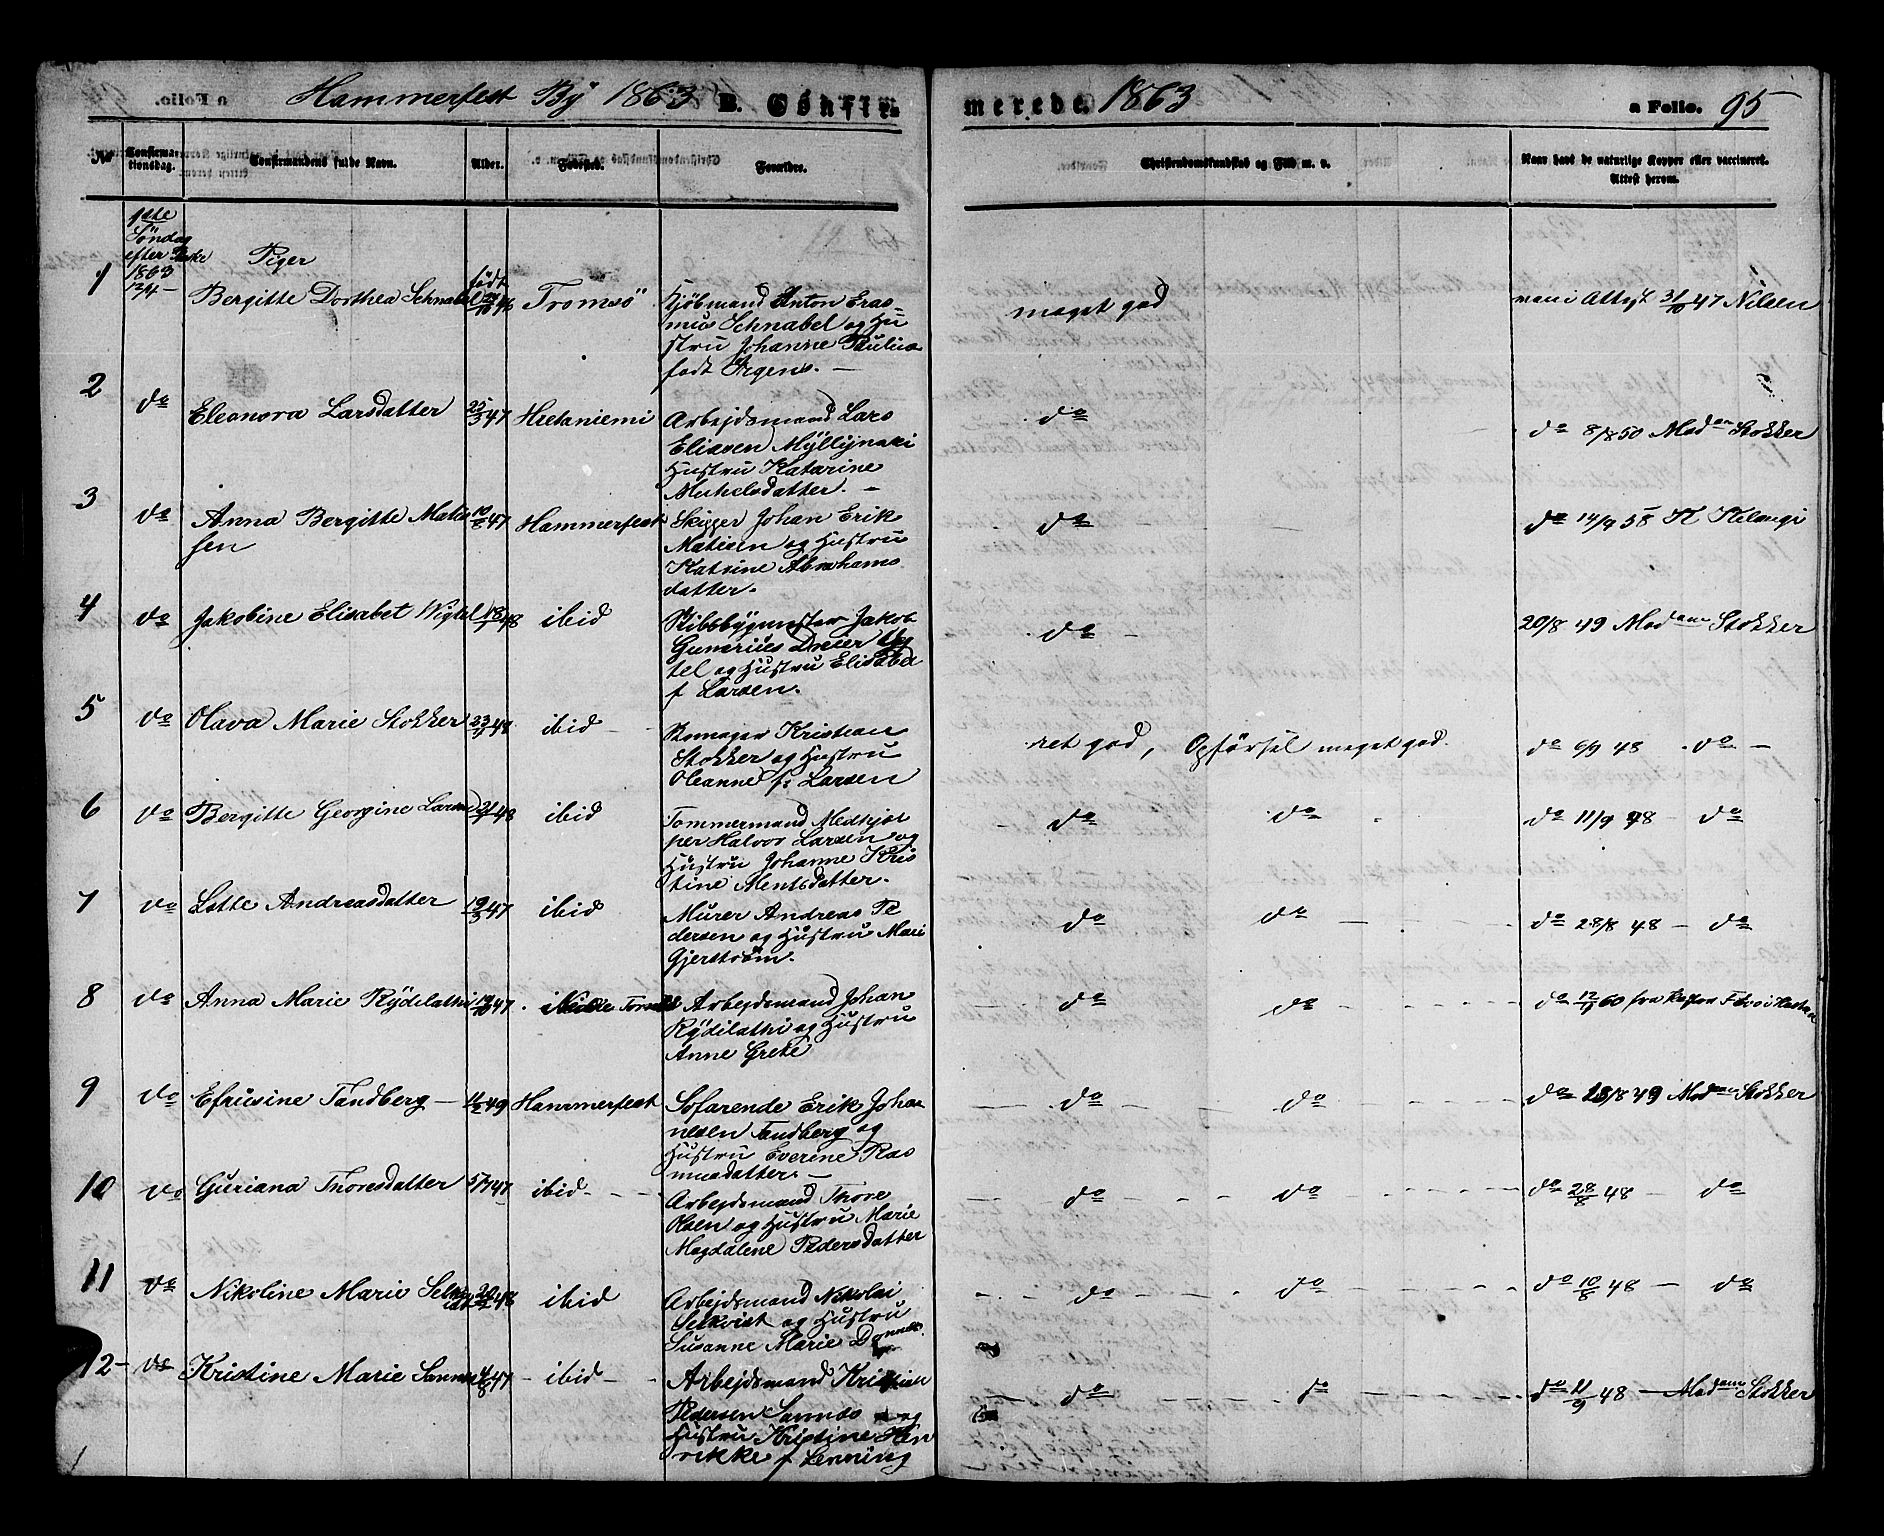 Hammerfest By 1863 B. Confir-
merede. 1863 a Folio. 95
No Confirmationsdag. Confirmandens fulde Navn. Alder. Fødested. Forældre. Christendomskundskab og Flid m. v. Naar havt de naturlige Kopper eller vaccineret. Attest herom.
1ste
Søndag
efter Paske
1863
12/4 —
Piger
1 Bergitte Dorthea Schnabel født Tromsø
Kjøbmand Anton Eras-
mus Schnabel og Hu
stru Johanne Paulina
født Irgens. —
meget god
Attest 31/10 47 Nilsen
2 do Eleonora Larsdatter 25/3 47 Hietaniemi
Arbejdsmand Lars
Eliasen Myllynaki
Hustru Katarine
Mikelsdatter. —
do
do 8/8 50 Madam Stokker
3 do Anna Bergitte Mati
sen 10/8 47 Hammerfest
Skipper Johan Erik
Matisen og Hustru
Katrine Abrahams
datter.
do
do 14/9 58
4 do Jakobine Elisabet Wigtel 18/1 48 ibid
Skibsbygmester Jakob
Gunerius Wig
tel og Hustru Elisabet
f Larsen.
do —
20/8 49 Madam Stokker
5 do Olava Marie Stokker 48 ibid —
Skomager Kristian
Stokker og Hustru
Oleanne f: Larsen
ret god, Opførsel meget god.
do 6/9 48 . do —
6 do Bergitte Georgine Larsen 48 ibid
Tømmermand Medhjæl
per Halvor Larsen og
Hustru Johanne Kris
tine Mentsdatter.
— do do
do 11/9 48 — do
7 do Lotte Andreasdatter 19/3 47 ibid
Murer Andreas Pe
dersen og Hustru Mari
Gjerstrøm.
do do —
do 28/8 48 — do
8 do Anna Marie Rydilathi 47 . Nedre Torneå
Arbejdsmand Johan
Rydilathi og Hustru
Anne Grete
— do do
do 12/11 60 fra Pastor
9 do Efrusine Tandberg — 11/2 49 Hammerfest
Søfarende Erik Johan
nesen Tandberg og
Hustru Everine Ras
musdatter. —
— do — do
do 28/8 49 Madam Stokker
10 do Guriana Thoresdatter 5/7 47 ibid
Arbejdsmand Thore
Olsen og Hustru Marie
Magdalene Pedersdatter
— do — do
do 28/8 48 — do
11 do Nikoline Marie Selk
vist 48 ibid
Arbejdsmand Nikolai
Selkvist og Hustru
Susanne Marie
do do
do 10/8 48 — do
12 — do Kristine Marie Sannes 4/8 47 — ibid —
Arbejdsmand Kristian
Pedersen Sannes og
Hustru Kristine Hen
rikke f Lenning
— do — do
do 11/9 48 — Madam Stokker